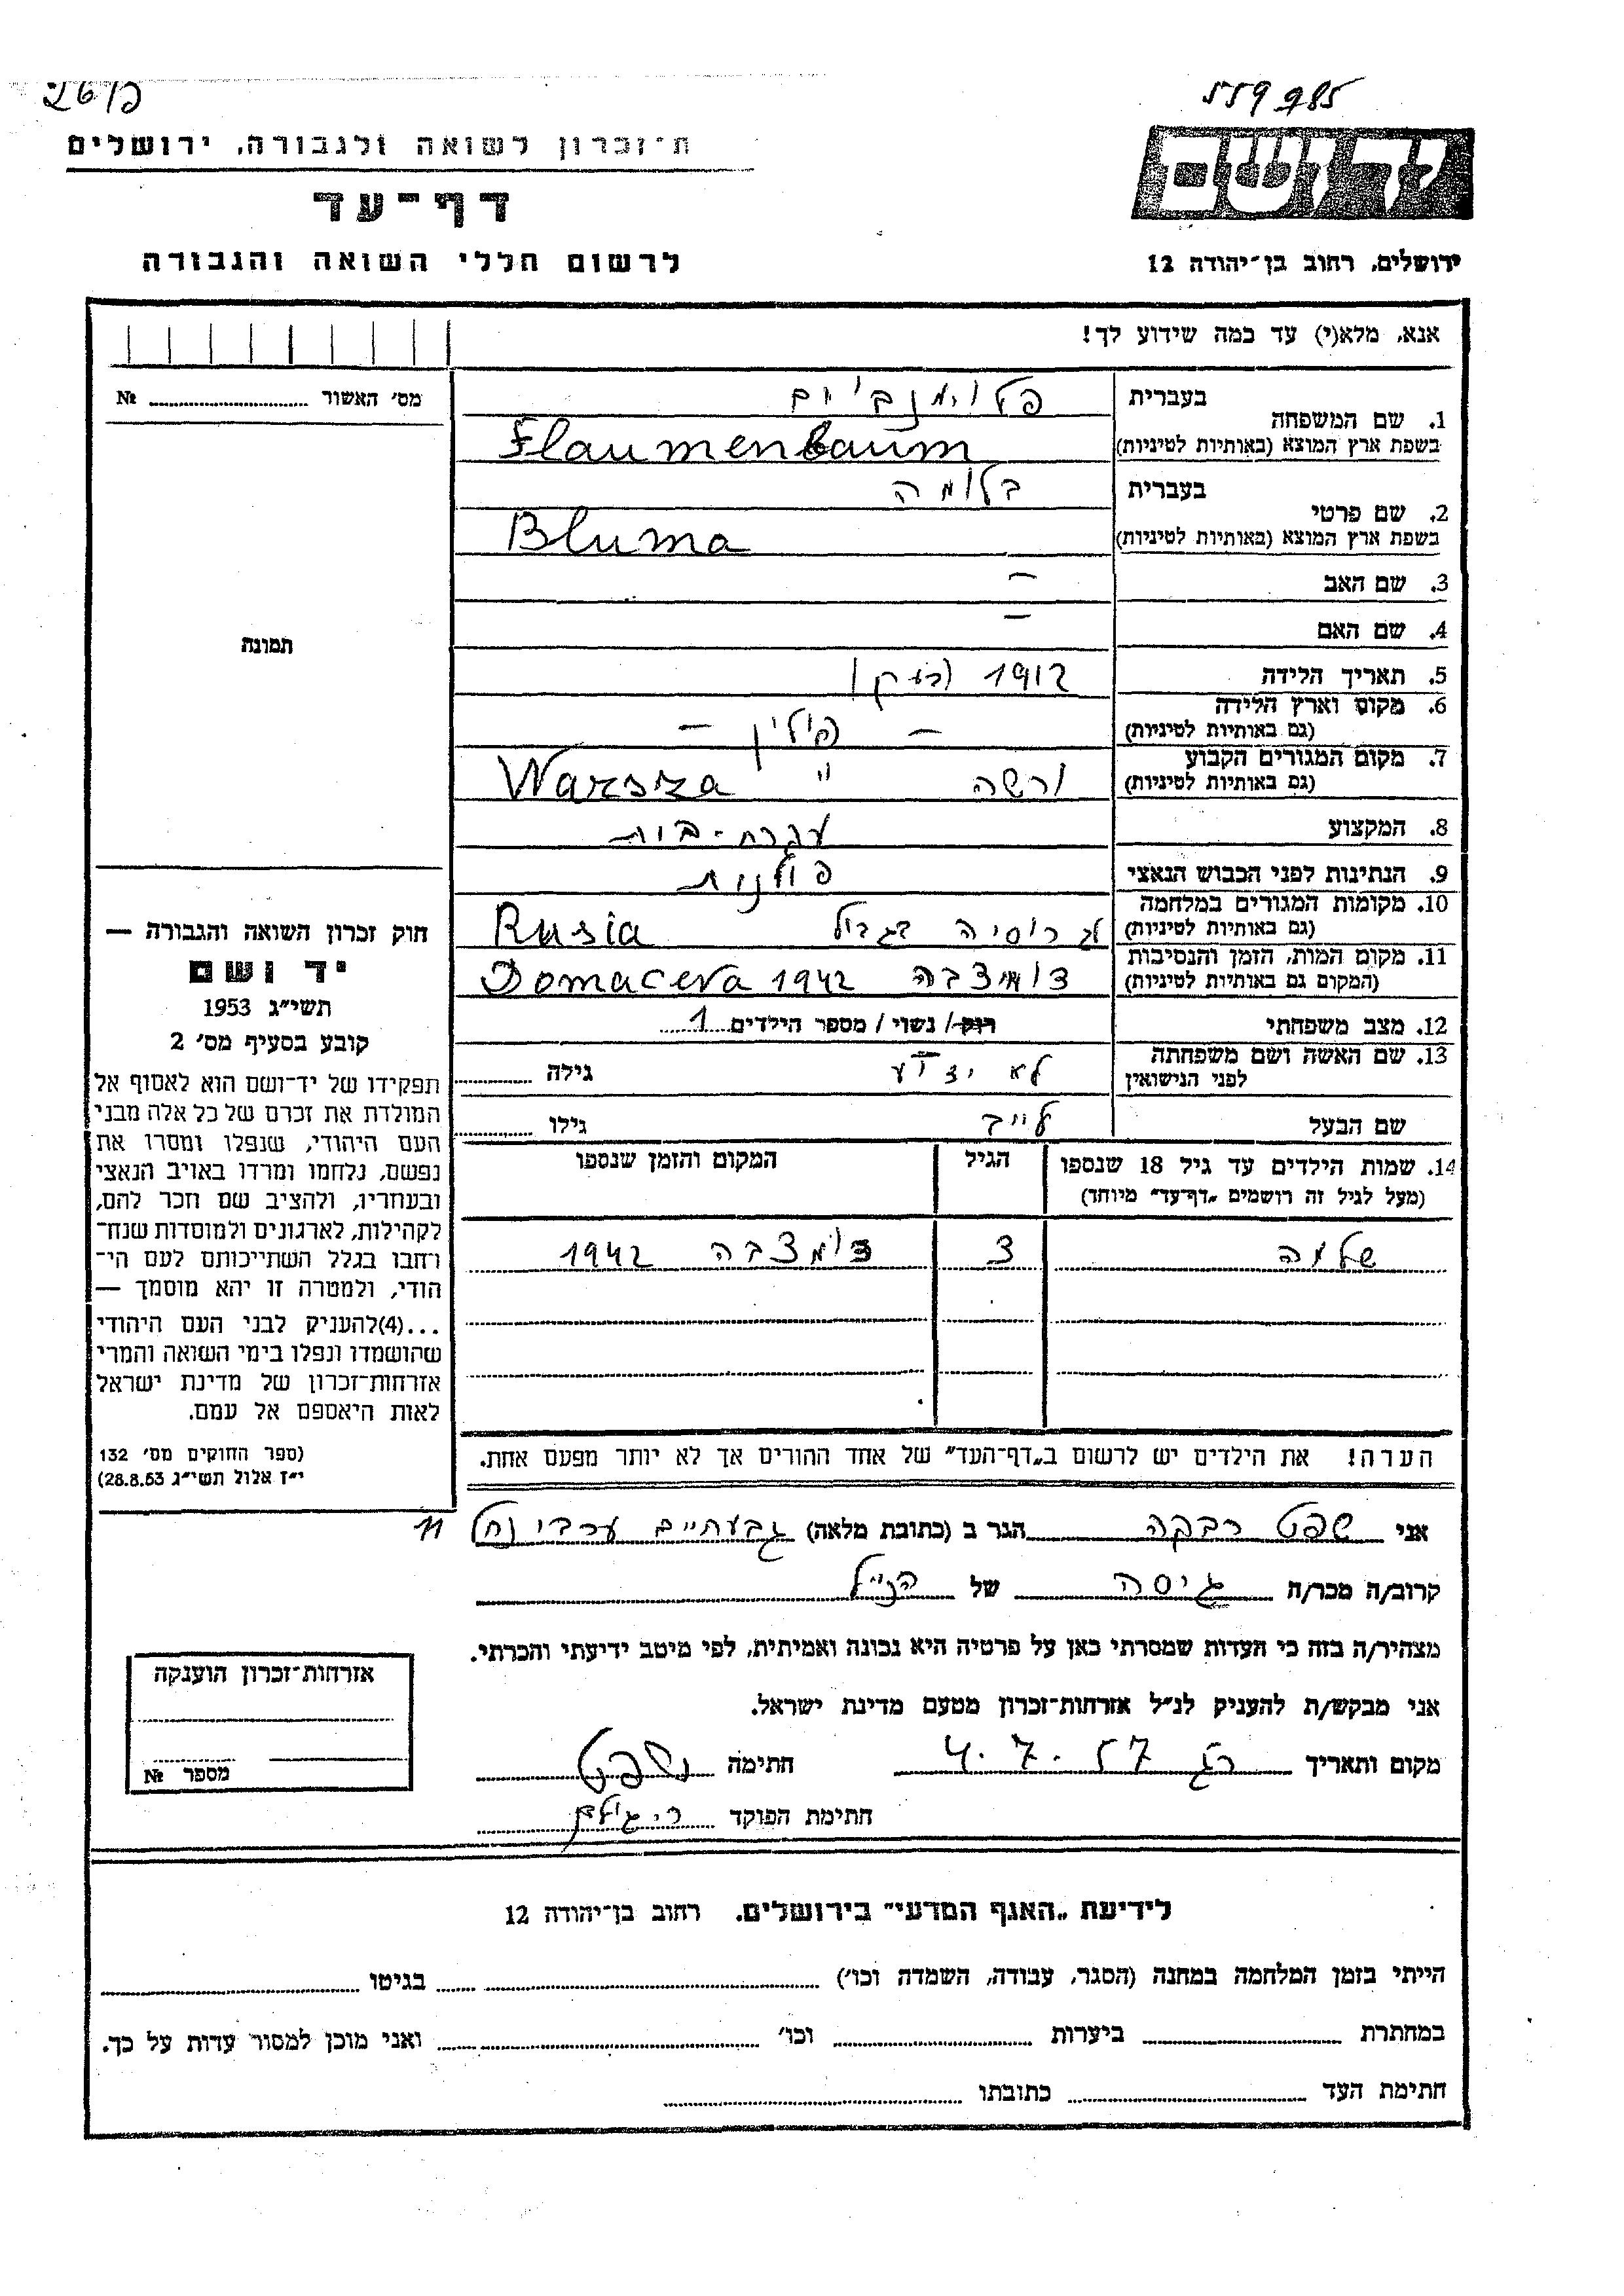 559785
ף267
ת־זכרון לשואה ולגבורה, ירושלים
דף־עד
לרשום חללי השואה והגבורה
ירושלים, רחוב בן־יהודה 12
אנא, מלא(י) עד כמה שידוע לך!
מס׳ האשור № 
1. שם המשפחה
בעברית פלוימנבוים
בשפת ארץ המוצא (באותיות לטיניות) Flaumenbaum
2. שם פרטי
בעברית בלומה
בשפת ארץ המוצא (באותיות לטיניות) Bluma
3. שם האב —
4. שם האם —
תמונה
5. תאריך הלידה 1912
6. מקום וארץ הלידה
(גם באותיות לטיניות) — פולין —
7. מקום המגורים הקבוע
(גם באותיות לטיניות) ורשה " Warsza
8. המקצוע עקרת-בית
9. הנתינות לפני הכבוש הנאצי פולנית
10. מקומות המגורים במלחמה
(גם באותיות לטיניות) רוסיה בגבול Rusia
11. מקום המות, הזמן והנסיבות
(המקום גם באותיות לטיניות) דומצבה 1942 Domaceva
12. מצב משפחתי רוק/ נשוי / מספר הילדים 1
13. שם האשה ושם משפחתה
לפני הנישואין לא ידוע גילה
שם הבעל לייב גילו
14. שמות הילדים עד גיל 18 שנספו הגיל המקום והזמן שנספו
(מעל לגיל זה רושמים „דף־עד” מיוחד)
שלמה 3 דומצבה 1942
הערה! את הילדים יש לרשום ב„דף־העד” של אחד ההורים אך לא יותר מפעם אחת.
חוק זכרון השואה והגבורה —
יד ושם
תשי״ג 1953
קובע בסעיף מס׳ 2
תפקידו של יד־ושם הוא לאסוף אל
המולדת את זכרם של כל אלה מבני
העם היהודי, שנפלו ומסרו את
נפשם, נלחמו ומרדו באויב הנאצי
ובעוזריו, ולהציב שם וזכר להם,
לקהילות, לארגונים ולמוסדות שנח־
רחבו בגלל השתייכותם לעם הי־
הודי, ולמטרה זו יהא מוסמך —
...(4)להעניק לבני העם היהודי
שהושמדו ונפלו בימי השואה והמרי
אזרחות־זכרון של מדינת ישראל
לאות היאספם אל עמם.
(ספר החוקים מס׳ 132
י״ז אלול תשי״ג 28.8.53)
אני שפט רבקה הגר ב (כתובת מלאה) גבעתיים ערבי נחל 11
קרוב/ה מכר/ה גיסה של הנ״ל
מצהיר/ה בזה כי העדות שמסרתי כאן על פרטיה היא נכונה ואמיתית, לפי מיטב ידיעתי והכרתי.
אני מבקש/ת להעניק לנ״ל אזרחות־זכרון מטעם מדינת ישראל.
מקום ותאריך רג 4.7.57 חתימה שפט
חתימת הפוקד
אזרחות־זכרון הוענקה
מספר №
לידיעת „האגף המדעי” בירושלים, רחוב בן־יהודה 12
הייתי בזמן המלחמה במחנה (הסגר, עבודה, השמדה וכו׳) בגיטו
במחתרת ביערות וכו׳ ואני מוכן למסור עדות על כך.
חתימת העד כתובתו